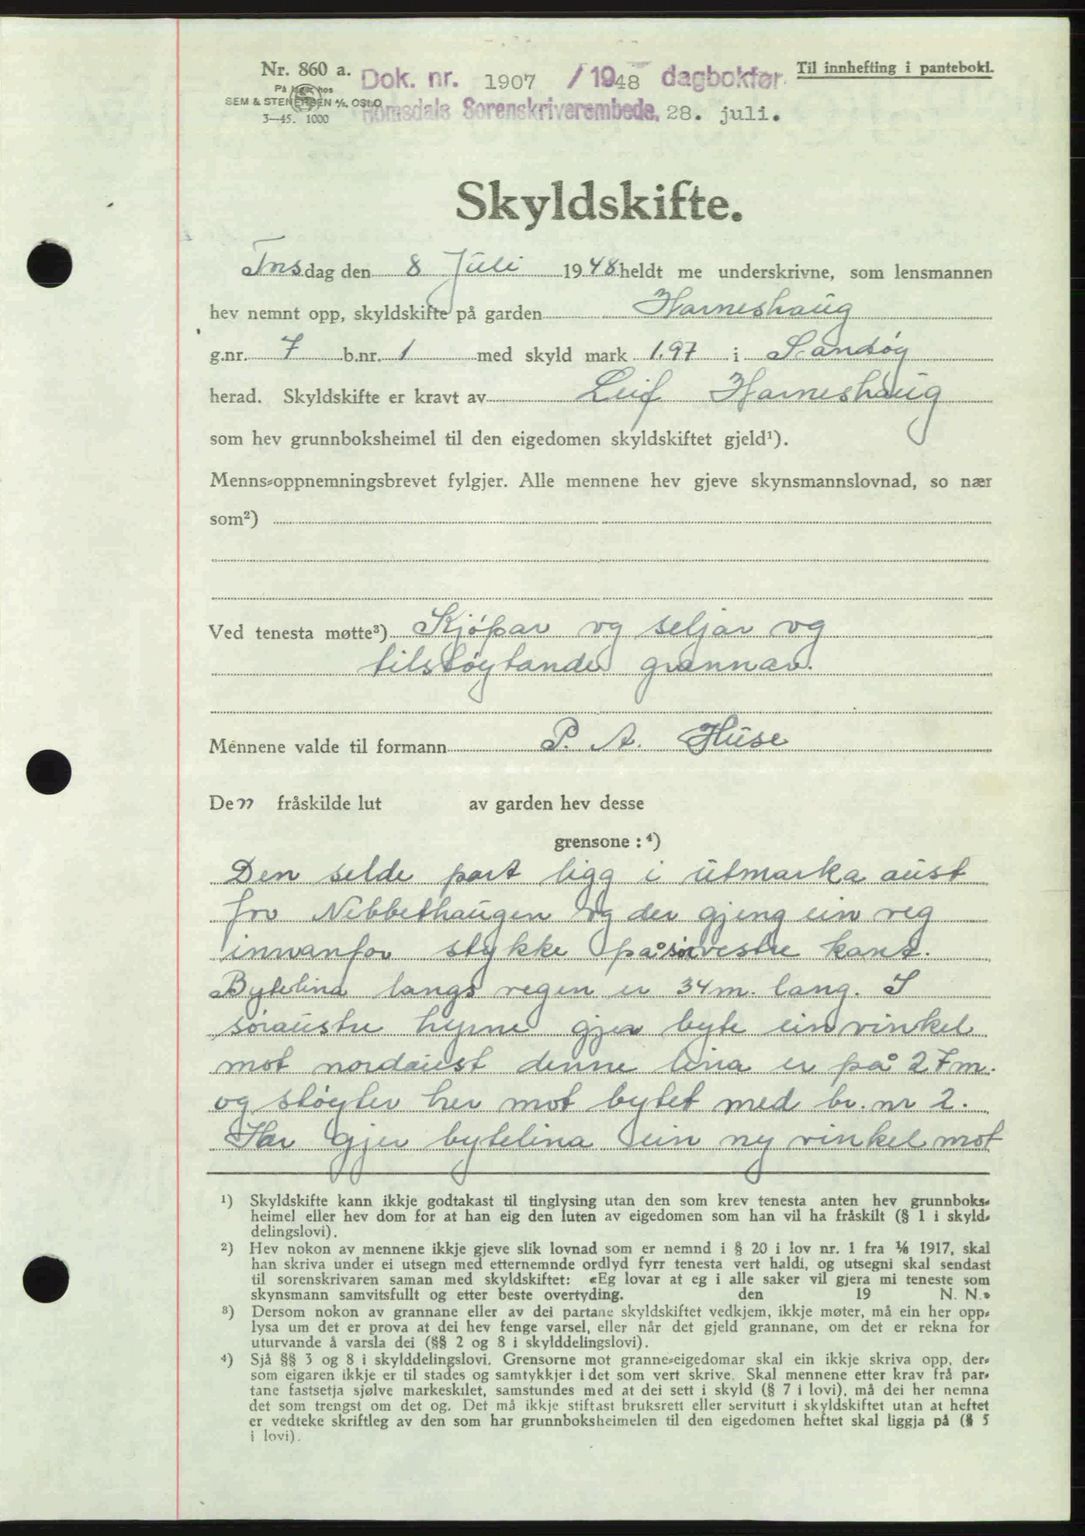 Nr. 860 a.
Dok. nr. 1907 / 1948 dagbokført
Til innhefting i pantebok.
SEM & STENERSEN A/S, OSLO
Romsdals Sorenskriverembede, 28. juli.
3—45. 1000
Skyldskifte.
Torsdag den 8 Juli 1948 heldt me underskrivne, som lensmannen
hev nemnt opp, skyldskifte på garden Harneshaug
g.nr. 7 b.nr. 1 med skyld mark 1.97 i Sandøy
herad. Skyldskifte er kravt av Leif Harneshaug
som hev grunnboksheimel til den eigedomen skyldskiftet gjeld¹).
Menns-oppnemningsbrevet fylgjer. Alle mennene hev gjeve skynsmannslovnad, so nær
som²)
Ved tenesta møtte³) Kjøpar og seljar og
tilstøytande grannar.
Mennene valde til formann P. A. Huse
Den fråskilde lut av garden hev desse
grensone: ⁴)
Den selde part ligg i utmarka aust
fro Nibbethaugen og der gjeng ein veg
innanfor stykke på sørvestre kant.
Bytelina langs vegen er 34 m. lang. I
søraustre hyrne gjer byte ein vinkel
mot nordaust denne lina er på 27 m.
og støyter her mot bytet med br. nr 2.
Her gjer bytelina ein ny vinkel mot
¹) Skyldskifte kann ikkje godtakast til tinglysing utan den som krev tenesta anten hev grunnboks-
heimel eller hev dom for at han eig den luten av eigedomen som han vil ha fråskilt (§ 1 i skyld-
delingslovi).
²) Hev nokon av mennene ikkje gjeve slik lovnad som er nemnd i § 20 i lov nr. 1 fra 1/6 1917, skal
han skriva under ei utsegn med etternemnde ordlyd fyrr tenesta vert haldi, og utsegni skal sendast
til sorenskrivaren saman med skyldskiftet: «Eg lovar at eg i alle saker vil gjera mi teneste som
skynsmann samvitsfullt og etter beste overtyding. den 19 N. N.»
³) Dersom nokon av grannane eller av dei partane skyldskiftet vedkjem, ikkje møter, må ein her opp-
lysa um det er prova at dei hev fenge varsel, eller når det gjeld grannane, om det er rekna for
uturvande å varsla dei (§§ 2 og 8 i skylddelingslovi).
⁴) Sjå §§ 3 og 8 i skylddelingslovi. Grensorne mot granne-eigedomar skal ein ikkje skriva opp, der-
som eigaren ikkje er til stades og samtykkjer i det som vert skrive. Skal mennene etter krav frå par-
tane fastsetja sjølve markeskilet, samstundes med at dei sett i skyld (§ 7 i lovi), må dei her nemna
det som trengst om det og. Det må ikkje stiftast bruksrett eller servitutt i skyldskiftet utan at heftet
er vedteke skriftleg av den som har grunnboksheimelen til den eigedomen heftet skal liggja på (§ 5
i lovi).